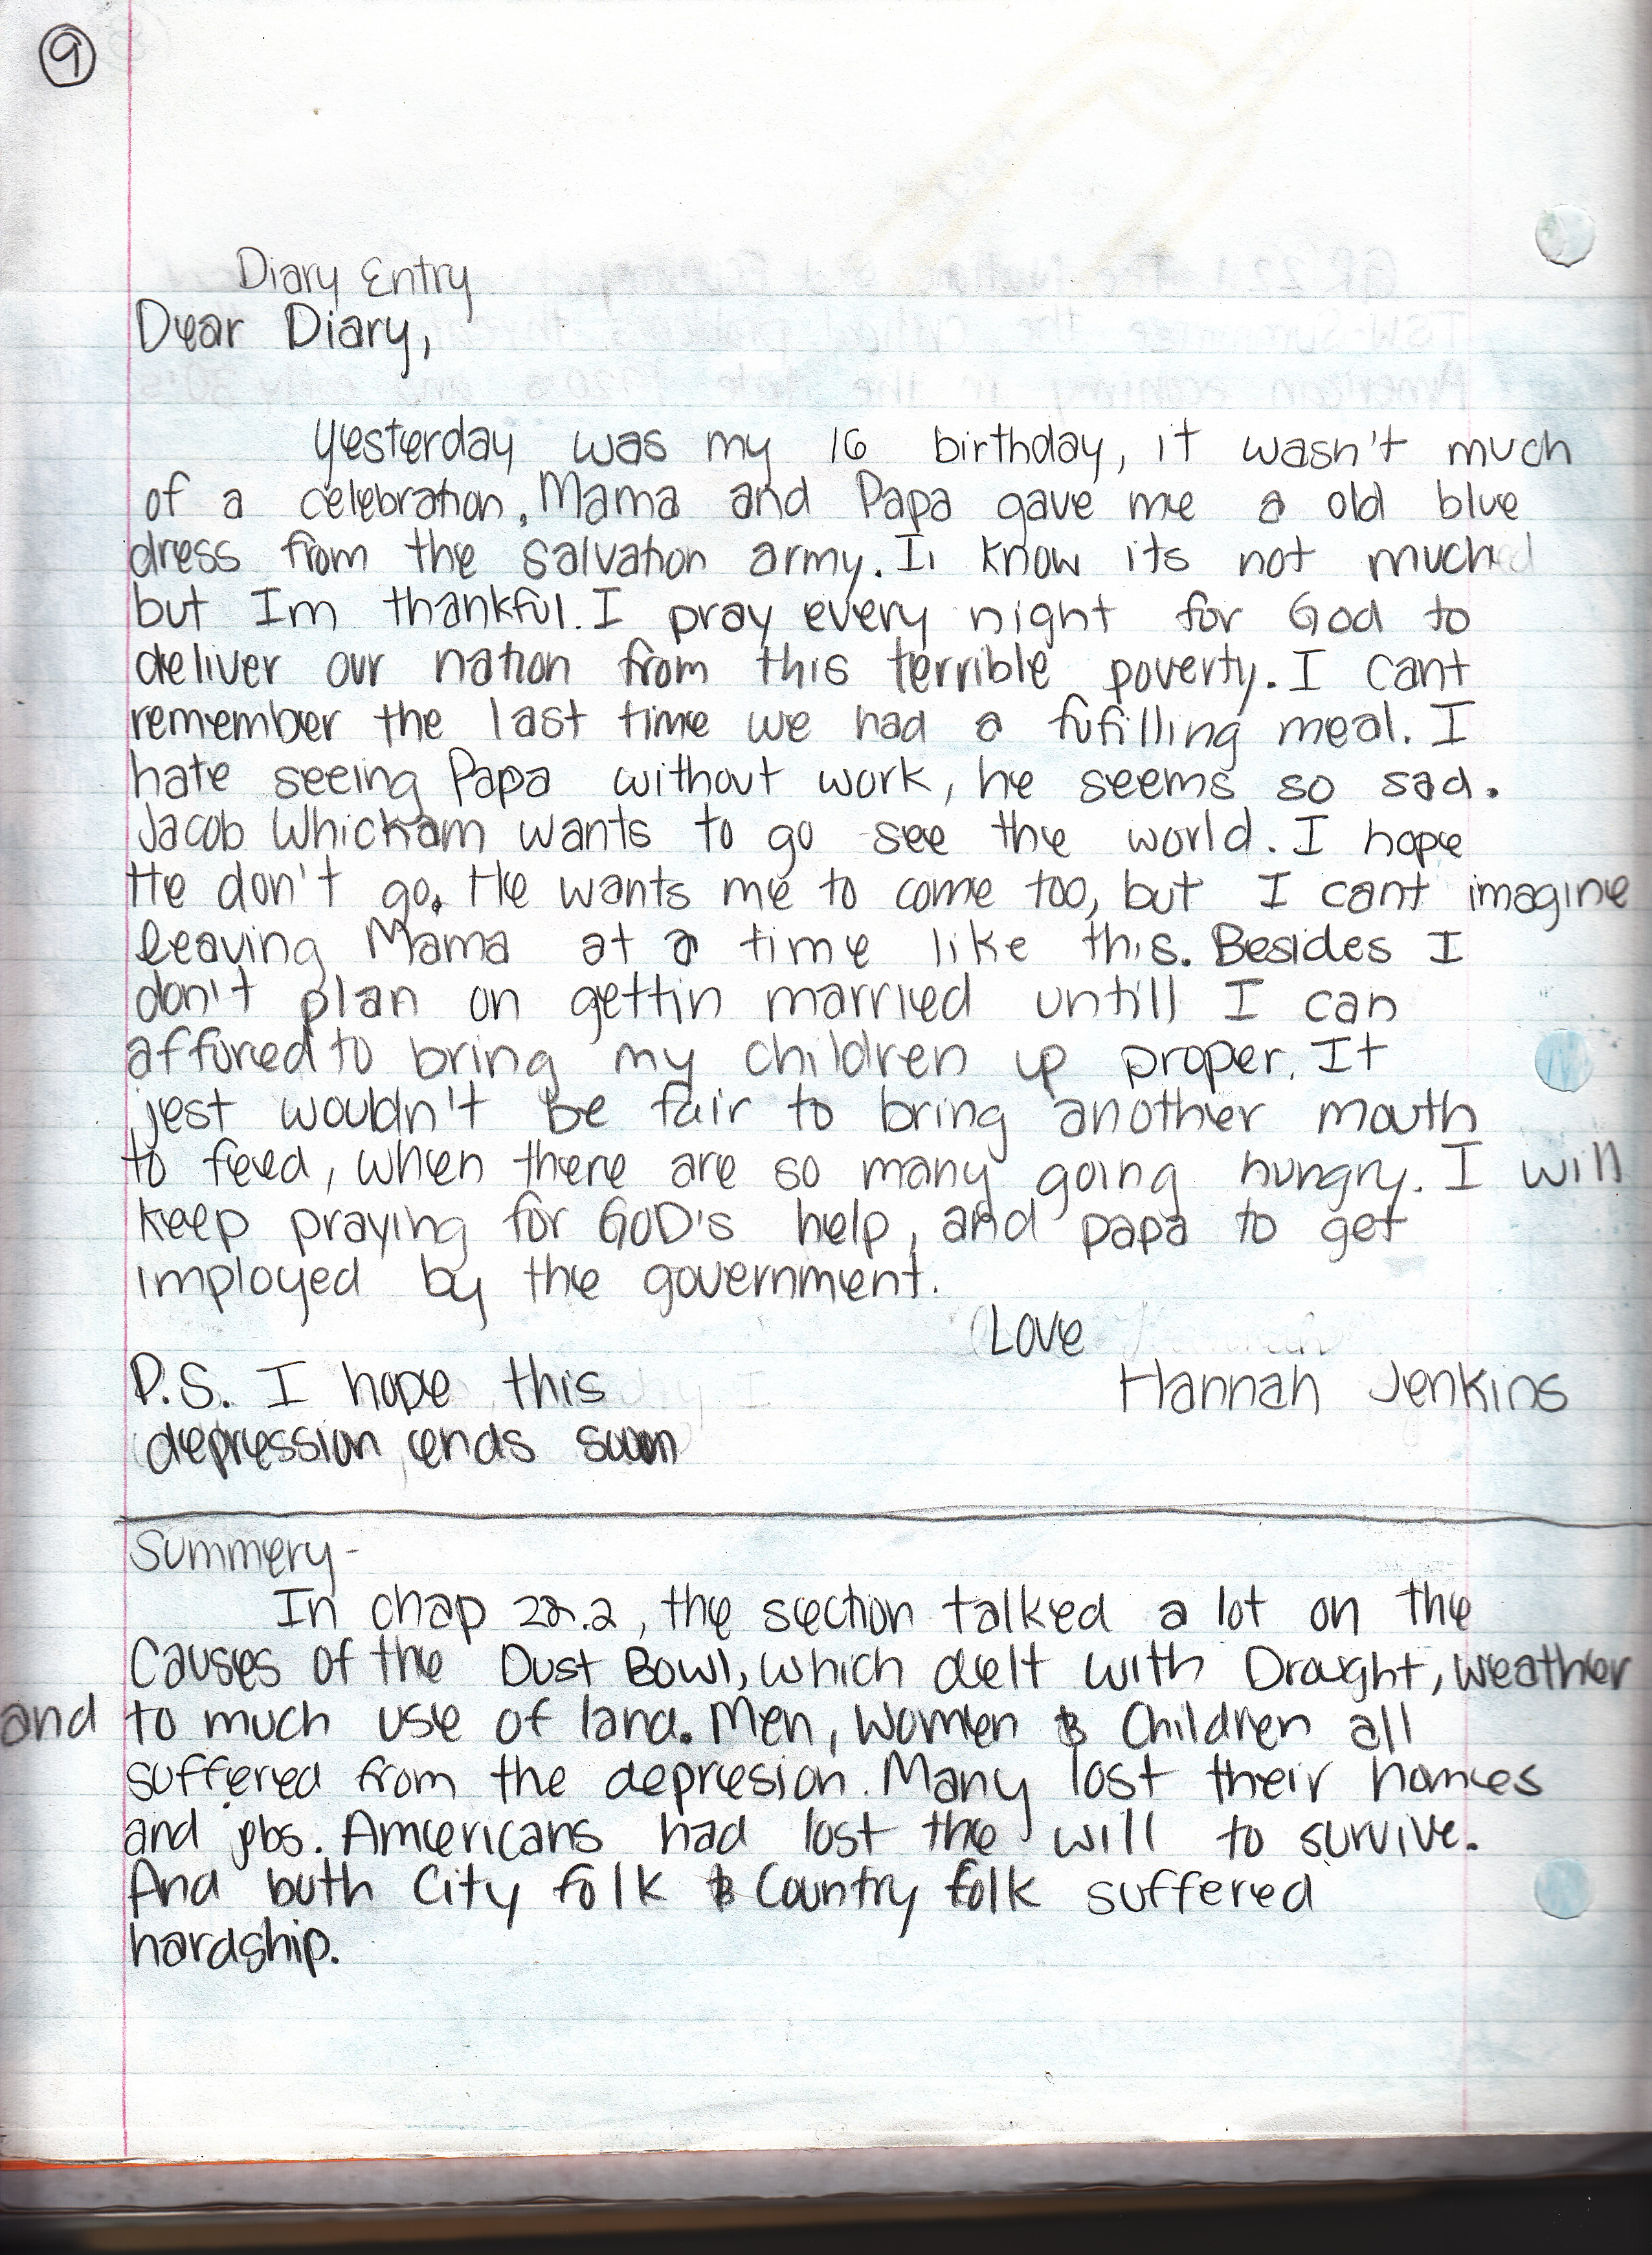 9
Diary Entry
Dear Diary,
Yesterday was my 16 birthday, it wasn't much
of a celebration. Mama and Papa gave me a old blue
dress from the salvation army. I know its not much
but Im thankful. I pray every night for God to
deliver our nation from this terrible poverty. I cant
remember the last time we had a fufilling meal. I
hate seeing Papa without work, he seems so sad.
Jacob Whickham wants to go see the world. I hope
He don't go. He wants me to come too, but I cant imagine
leaving Mama at a time like this. Besides I
don't plan on gettin married untill I can
affored to bring my children up proper. It
jest wouldn't be fair to bring another mouth
to feed, when there are so many going hungry. I will
keep praying for GOD's help, and papa to get
imployed by the government.
Love
Hannah Jenkins
P.S. I hope this
depression ends soon
Summery-
In chap 22.2, the section talked a lot on the
Causes of the Dust Bowl, which delt with Drought, weather
and to much use of land. Men, Women & Children all
suffered from the depresion. Many lost their homes
and jobs. Americans had lost the will to survive.
And both City folk & Country folk suffered
hardship.